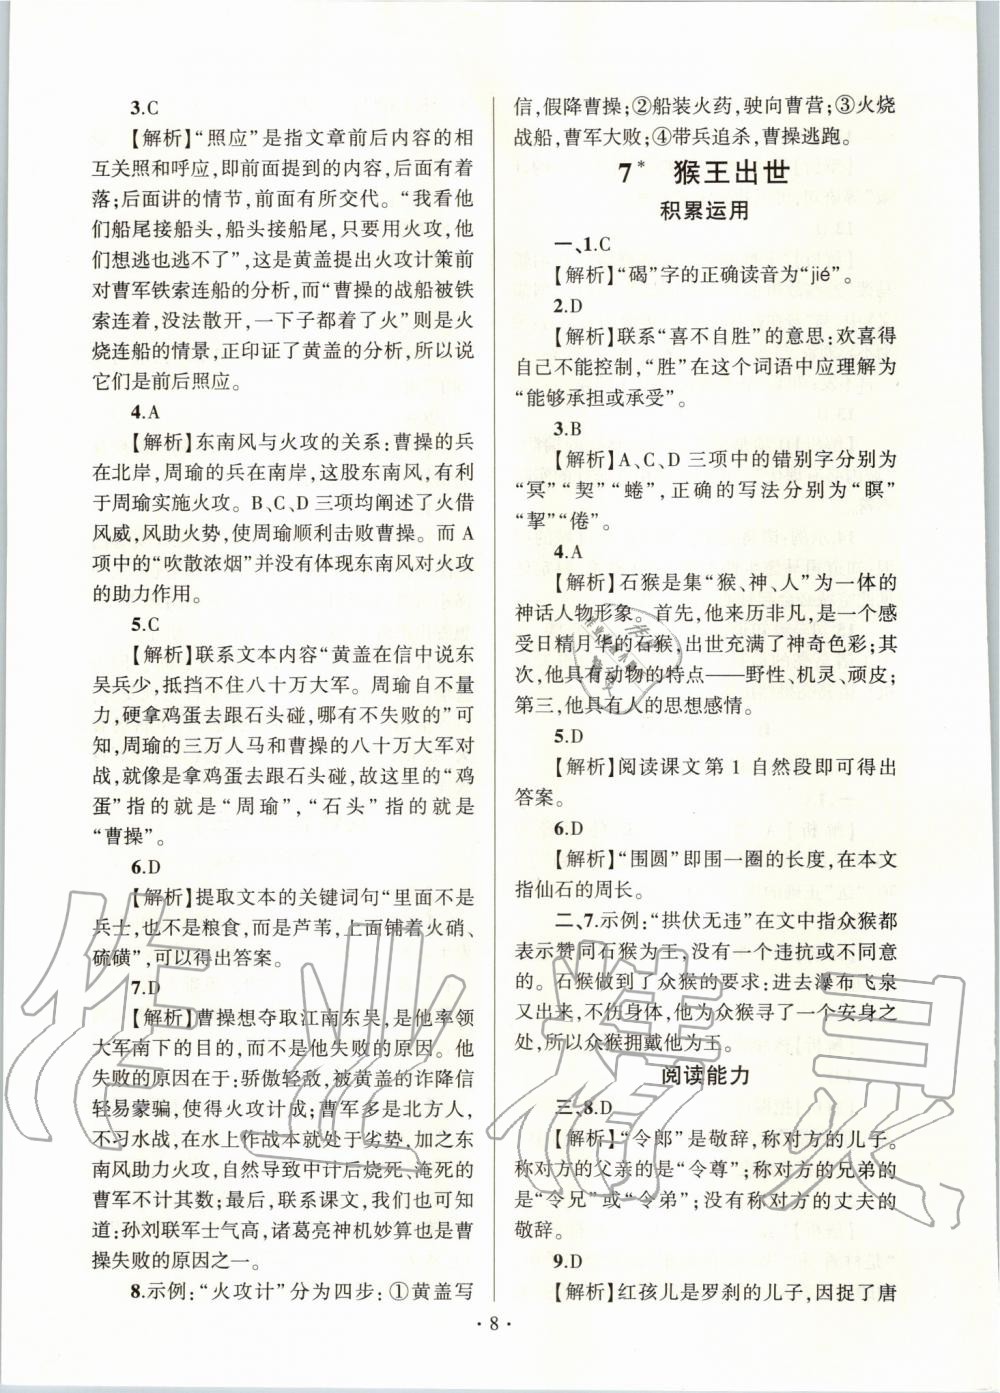 3.C
【解析】“照应”是指文章前后内容的相
互关照和呼应,即前面提到的内容,后面有着
落;后面讲的情节,前面有所交代。“我看他
们船尾接船头,船头接船尾,只要用火攻,他
们想逃也逃不了”,这是黄盖提出火攻计策前
对曹军铁索连船的分析,而“曹操的战船被铁
索连着,没法散开,一下子都着了火”则是火
烧连船的情景,正印证了黄盖的分析,所以说
它们是前后照应。
4.A
【解析】东南风与火攻的关系:曹操的兵
在北岸,周瑜的兵在南岸,这股东南风,有利
于周瑜实施火攻。B、C、D 三项均阐述了火借
风威,风助火势,使周瑜顺利击败曹操。而 A
项中的“吹散浓烟”并没有体现东南风对火攻
的助力作用。
5.C
【解析】联系文本内容“黄盖在信中说东
吴兵少,抵挡不住八十万大军。周瑜自不量
力,硬拿鸡蛋去跟石头碰,哪有不失败的”可
知,周瑜的三万人马和曹操的八十万大军对
战,就像是拿鸡蛋去跟石头碰,故这里的“鸡
蛋”指的就是“周瑜”,“石头”指的就是
“曹操”。
6.D
【解析】提取文本的关键词句“里面不是
兵士,也不是粮食,而是芦苇,上面铺着火硝、
硫磺”,可以得出答案。
7.D
【解析】曹操想夺取江南东吴,是他率领
大军南下的目的,而不是他失败的原因。他
失败的原因在于:骄傲轻敌,被黄盖的诈降信
轻易蒙骗,使得火攻计成;曹军多是北方人,
不习水战,在水上作战本就处于劣势,加之东
南风助力火攻,自然导致中计后烧死、淹死的
曹军不计其数;最后,联系课文,我们也可知
道:孙刘联军士气高,诸葛亮神机妙算也是曹
操失败的原因之一。
8.示例:“火攻计”分为四步:①黄盖写
信,假降曹操;②船装火药,驶向曹营;③火烧
战船,曹军大败;④带兵追杀,曹操逃跑。
7* 猴王出世
积累运用
一、1.C
【解析】“碣”字的正确读音为“jié”。
2.D
【解析】联系“喜不自胜”的意思:欢喜得
自己不能控制,“胜”在这个词语中应理解为
“能够承担或承受”。
3.B
【解析】A、C、D 三项中的错别字分别为
“冥”“契”“蜷”,正确的写法分别为“瞑”
“挈”“倦”。
4.A
【解析】石猴是集“猴、神、人”为一体的
神话人物形象。首先,他来历非凡,是一个感
受日精月华的石猴,出世充满了神奇色彩;其
次,他具有动物的特点——野性、机灵、顽皮;
第三,他具有人的思想感情。
5.D
【解析】阅读课文第 1 自然段即可得出
答案。
6.D
【解析】“围圆”即围一圈的长度,在本文
指仙石的周长。
二、7.示例:“拱伏无违”在文中指众猴都
表示赞同石猴为王,没有一个违抗或不同意
的。石猴做到了众猴的要求:进去瀑布飞泉
又出来,不伤身体,他为众猴寻了一个安身之
处,所以众猴拥戴他为王。
阅读能力
三、8.D
【解析】“令郎”是敬辞,称对方的儿子。
称对方的父亲的是“令尊”;称对方的兄弟的
是“令兄”或“令弟”;没有称对方的丈夫的
敬辞。
9.D
【解析】红孩儿是罗刹的儿子,因捉了唐
· 8 ·
作业精灵